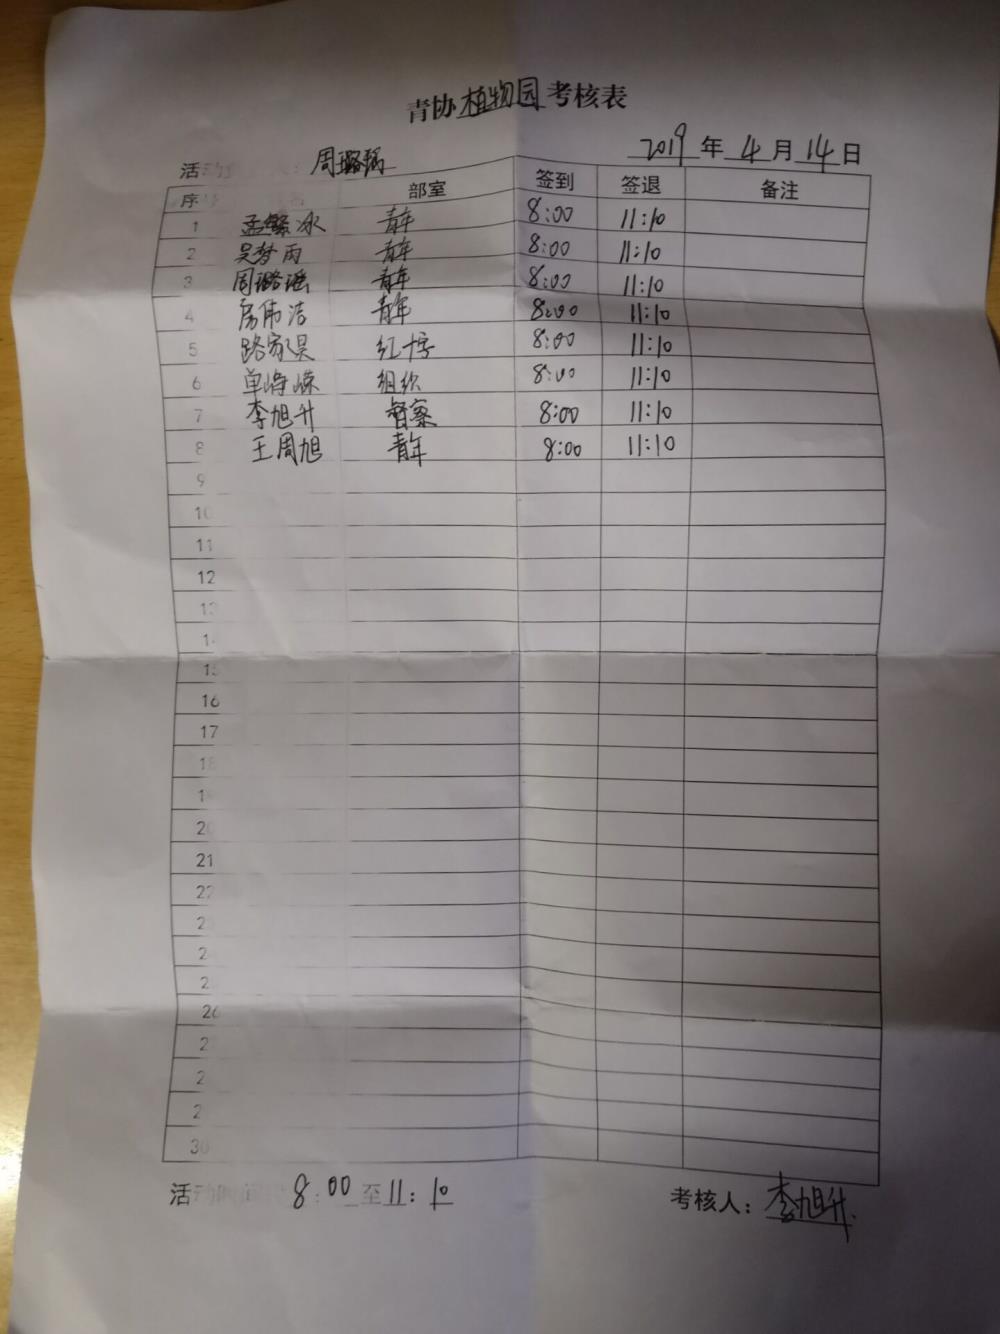 青协植物园考核表
2019年4月14日
活动 : 周璐瑶
序 部室 签到 签退 备注
1 孟繁冰 青年 8:00 11:10
2 吴梦雨 青年 8:00 11:10
3 周璐瑶 青年 8:00 11:10
4 房伟洁 青年 8:00 11:10
5 路家昊 红十字 8:00 11:10
6 单峥嵘 组织 8:00 11:10
7 李旭升 督察 8:00 11:10
8 王周旭 青年 8:00 11:10
9
10
11
12
13
14
15
16
17
18
19
20
21
22
2
2
2
26
2
2
2
30
活动时间 8:00至11:10
考核人：李旭升